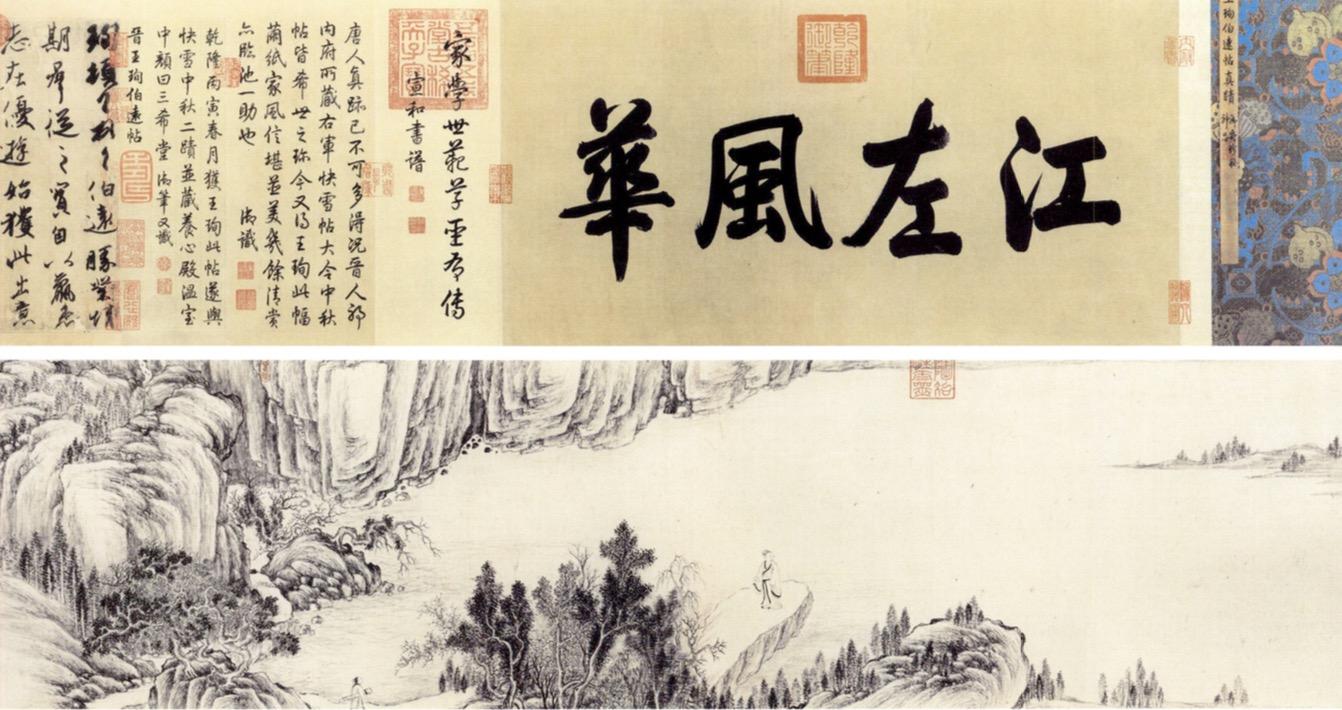 王珣伯遠帖真蹟
江左風華
乾隆御筆
家學世範草聖有傳
宣和書譜
唐人真跡已不可多得況晉人耶
內府所藏右軍快雪帖大令中秋
帖皆希世之珍今又得王珣此幅
繭紙家風信堪並美幾餘清賞
亦臨池一助也 御識
乾隆丙寅春月獲王珣此帖遂與
快雪中秋二蹟並藏養心殿溫室
中顏曰三希堂 御筆又識
晉王珣伯遠帖
珣頓首頓首伯遠勝業情
期群從之寶自以羸患
志在優遊始獲此出意